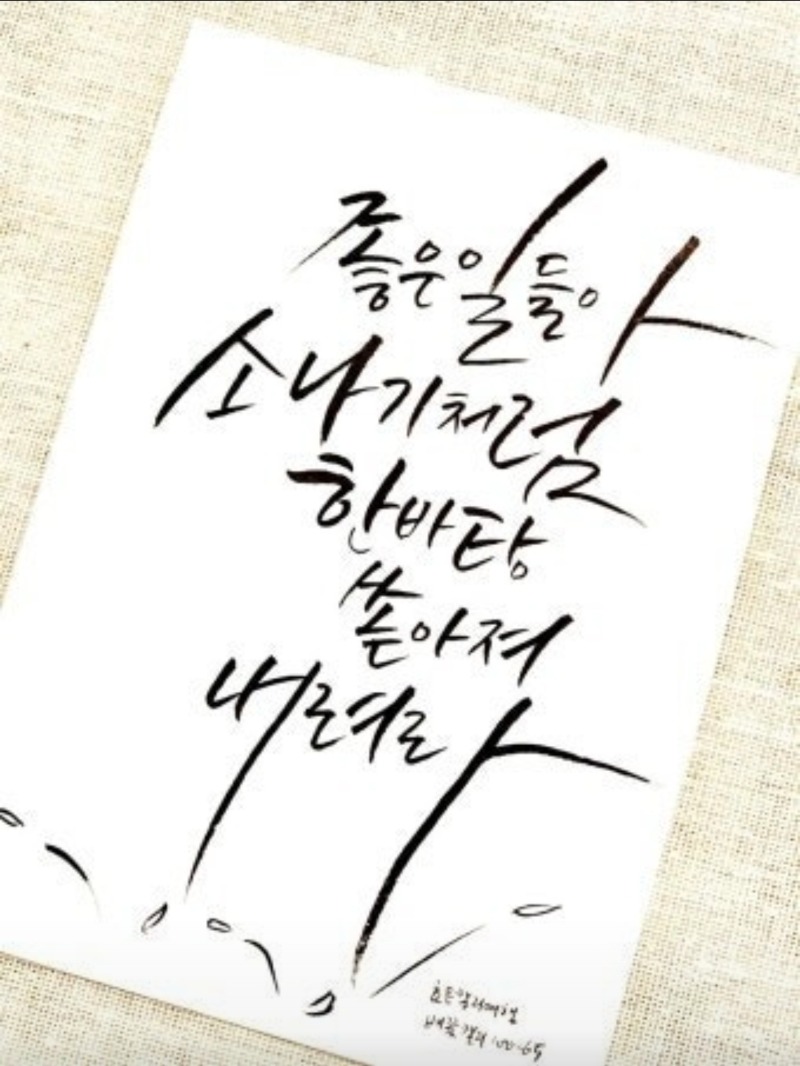 좋은일들아
소나기처럼
한바탕
쏟아져
내려라